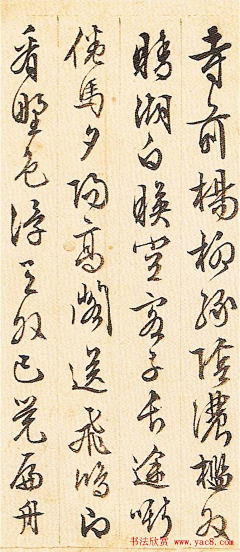 寺前楊柳綠陰濃檻外
晴湖白映空客子長途嘶
倦馬夕陽高閣送飛鴻即
看野色浮天外已覺扁舟
书法欣赏
www.yac8.com